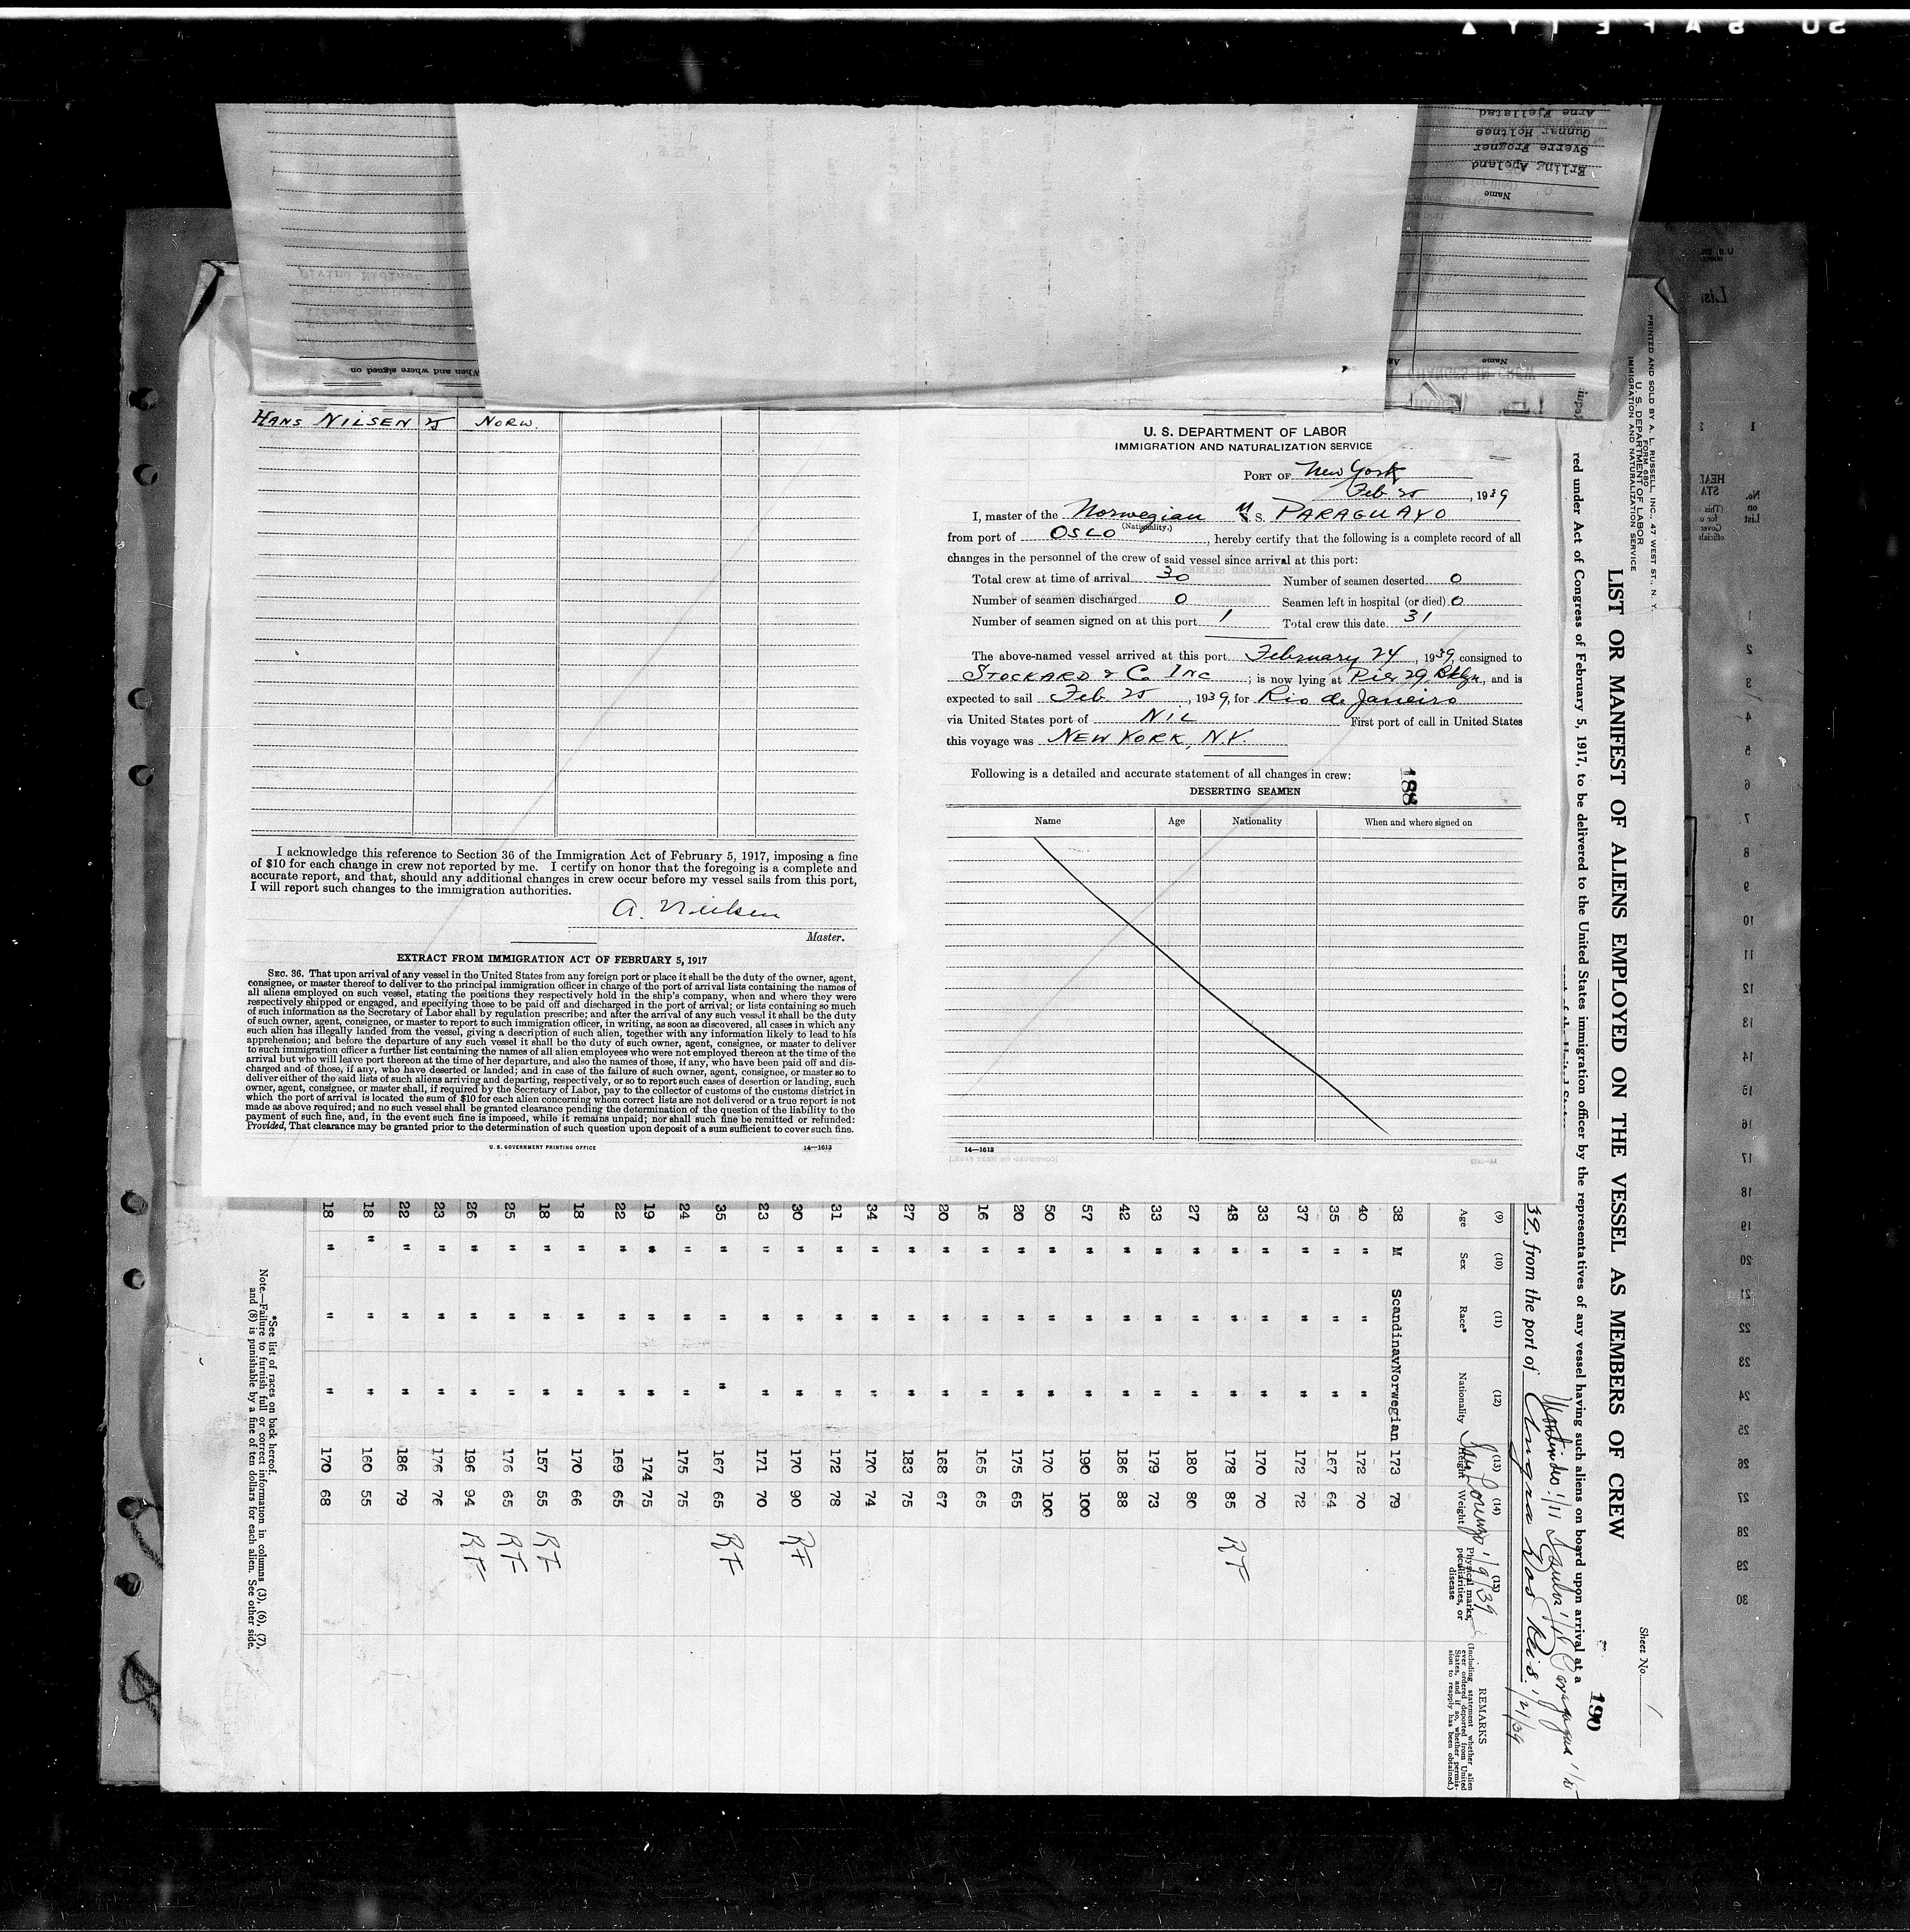 HANS NILSEN 25 NORW.
I acknowledge this reference to Section 36 of the Immigration Act of February 5, 1917, imposing a fine
of $10 for each change in crew not reported by me. I certify on honor that the foregoing is a complete and
accurate report, and that, should any additional changes in crew occur before my vessel sails from this port,
I will report such changes to the immigration authorities.
Master.
EXTRACT FROM IMMIGRATION ACT OF FEBRUARY 5, 1917
SEC. 36. That upon arrival of any vessel in the United States from any foreign port or place it shall be the duty of the owner, agent,
consignee, or master thereof to deliver to the principal immigration officer in charge of the port of arrival lists containing the names of
all aliens employed on such vessel, stating the positions they respectively hold in the ship's company, when and where they were
respectively shipped or engaged, and specifying those to be paid off and discharged in the port of arrival; or lists containing so much
of such information as the Secretary of Labor shall by regulation prescribe; and after the arrival of any such vessel it shall be the duty
of such owner, agent, consignee, or master to report to such immigration officer, in writing, as soon as discovered, all cases in which any
such alien has illegally landed from the vessel, giving a description of such alien, together with any information likely to lead to his
apprehension; and before the departure of any such vessel it shall be the duty of such owner, agent, consignee, or master to deliver
to such immigration officer a further list containing the names of all alien employees who were not employed thereon at the time of the
arrival but who will leave port thereon at the time of her departure, and also the names of those, if any, who have been paid off and dis-
charged and of those, if any, who have deserted or landed; and in case of the failure of such owner, agent, consignee, or master so to
deliver either of the said lists of such aliens arriving and departing, respectively, or so to report such cases of desertion or landing, such
owner, agent, consignee, or master shall, if required by the Secretary of Labor, pay to the collector of customs of the customs district in
which the port of arrival is located the sum of $10 for each alien concerning whom correct lists are not delivered or a true report is not
made as above required; and no such vessel shall be granted clearance pending the determination of the question of the liability to the
payment of such fine, and, in the event such fine is imposed, while it remains unpaid; nor shall such fine be remitted or refunded:
Provided, That clearance may be granted prior to the determination of such question upon deposit of a sum sufficient to cover such fine.
U. S. GOVERNMENT PRINTING OFFICE 14—1613
U. S. DEPARTMENT OF LABOR
IMMIGRATION AND NATURALIZATION SERVICE
PORT OF New York
Feb 25, 1939
I, master of the Norwegian M. S. PARAGUAYO
(Nationality.)
from port of OSLO, hereby certify that the following is a complete record of all
changes in the personnel of the crew of said vessel since arrival at this port:
Total crew at time of arrival 30 Number of seamen deserted 0
Number of seamen discharged 0 Seamen left in hospital (or died) 0
Number of seamen signed on at this port 1 Total crew this date 31
The above-named vessel arrived at this port February 24, 1939, consigned to
STOCKARD & Co INC; is now lying at Pier 29 Bklyn, and is
expected to sail Feb 25, 1939, for Rio de Janeiro
via United States port of NIL First port of call in United States
this voyage was NEW YORK, N.Y.
Following is a detailed and accurate statement of all changes in crew:
188
DESERTING SEAMEN
Name Age Nationality When and where signed on
14—1613
PRINTED AND SOLD BY A. L. RUSSELL, INC., 47 WEST ST., N. Y.
FORM 680
U. S. DEPARTMENT OF LABOR
IMMIGRATION AND NATURALIZATION SERVICE
Sheet No. 1
LIST OR MANIFEST OF ALIENS EMPLOYED ON THE VESSEL AS MEMBERS OF CREW
190
red under Act of Congress of February 5, 1917, to be delivered to the United States immigration officer by the representatives of any vessel having such aliens on board upon arrival at a
39, from the port of Angra Dos Reis 1/21/39
(9) (10) (11) (12) (13) (14) (15)
Age Sex Race* Nationality Height Weight Physical marks, peculiarities, or disease
REMARKS
(Including statement whether alien
ever ordered deported from United
States, and if so, whether permis-
sion to reapply has been obtained.)
38 M Scandinav Norwegian 173 79
40 " " " 172 70
35 " " " 167 64
37 " " " 172 72
33 " " " 170 70
48 " " " 178 85 RF
27 " " " 180 80
33 " " " 179 73
42 " " " 186 88
57 " " " 190 100
50 " " " 170 100
20 " " " 175 65
16 " " " 165 65
20 " " " 168 67
27 " " " 183 75
34 " " " 170 74
31 " " " 172 78
30 " " " 170 90 RF
23 " " " 171 70
35 " " " 167 65 RF
24 " " " 175 75
19 " " " 174 75
22 " " " 169 65
18 " " " 170 66
18 " " " 157 55 RF
25 " " " 176 65 RF
26 " " " 196 94 RF
23 " " " 176 76
22 " " " 186 79
18 " " " 160 55
18 " " " 170 68
*See list of races on back hereof.
Note.—Failure to furnish full or correct information in columns (3), (6), (7),
and (8) is punishable by a fine of ten dollars for each alien. See other side.
When and where signed on
Name
Name
Erling Apeland
Sverre Frogner
Gunnar Holtnes
Arne Fjellstad